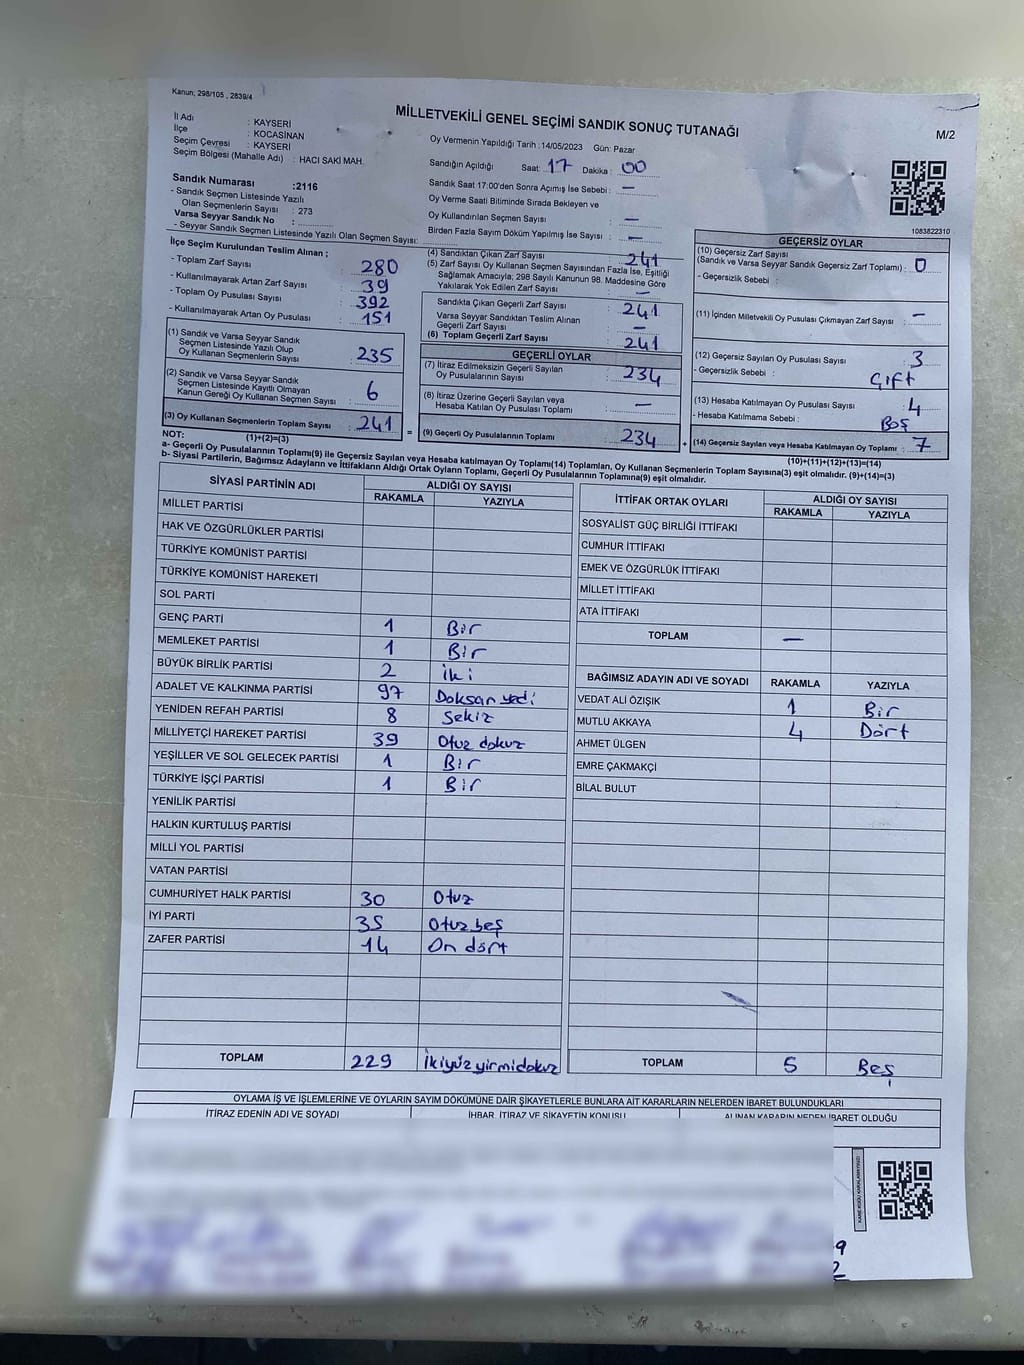 Kanun; 298/105 , 2839/4
MİLLETVEKİLİ GENEL SEÇİMİ SANDIK SONUÇ TUTANAĞI
M/2
İl Adı : KAYSERİ
İlçe : KOCASİNAN
Seçim Çevresi : KAYSERİ
Seçim Bölgesi (Mahalle Adı) : HACI SAKİ MAH.
Sandık Numarası :2116
- Sandık Seçmen Listesinde Yazılı
Olan Seçmenlerin Sayısı : 273
Varsa Seyyar Sandık No :
- Seyyar Sandık Seçmen Listesinde Yazılı Olan Seçmen Sayısı:
Oy Vermenin Yapıldığı Tarih :14/05/2023 Gün: Pazar
Sandığın Açıldığı Saat: 17 Dakika : 00
Sandık Saat 17:00'den Sonra Açımış İse Sebebi : —
Oy Verme Saati Bitiminde Sırada Bekleyen ve
Oy Kullandırılan Seçmen Sayısı : —
Birden Fazla Sayım Döküm Yapılmış İse Sayısı : —
1083822310
İlçe Seçim Kurulundan Teslim Alınan ;
- Toplam Zarf Sayısı : 280
- Kullanılmayarak Artan Zarf Sayısı : 39
- Toplam Oy Pusulası Sayısı : 392
- Kullanılmayarak Artan Oy Pusulası : 151
(1) Sandık ve Varsa Seyyar Sandık
Seçmen Listesinde Yazılı Olup
Oy Kullanan Seçmenlerin Sayısı : 235
(2) Sandık ve Varsa Seyyar Sandık
Seçmen Listesinde Kayıtlı Olmayan
Kanun Gereği Oy Kullanan Seçmen Sayısı : 6
(3) Oy Kullanan Seçmenlerin Toplam Sayısı : 241
(1)+(2)=(3)
(4) Sandıktan Çıkan Zarf Sayısı : 241
(5) Zarf Sayısı Oy Kullanan Seçmen Sayısından Fazla İse, Eşitliği
Sağlamak Amacıyla; 298 Sayılı Kanunun 98. Maddesine Göre
Yakılarak Yok Edilen Zarf Sayısı : —
Sandıkta Çıkan Geçerli Zarf Sayısı : 241
Varsa Seyyar Sandıktan Teslim Alınan
Geçerli Zarf Sayısı : —
(6) Toplam Geçerli Zarf Sayısı : 241
GEÇERLİ OYLAR
(7) İtiraz Edilmeksizin Geçerli Sayılan
Oy Pusulalarının Sayısı : 234
(8) İtiraz Üzerine Geçerli Sayılan veya
Hesaba Katılan Oy Pusulası Toplamı : —
= (9) Geçerli Oy Pusulalarının Toplamı : 234 +
GEÇERSİZ OYLAR
(10) Geçersiz Zarf Sayısı
(Sandık ve Varsa Seyyar Sandık Geçersiz Zarf Toplamı) : 0
- Geçersizlik Sebebi :
(11) İçinden Milletvekili Oy Pusulası Çıkmayan Zarf Sayısı : —
(12) Geçersiz Sayılan Oy Pusulası Sayısı : 3
- Geçersizlik Sebebi : Çift
(13) Hesaba Katılmayan Oy Pusulası Sayısı : 4
- Hesaba Katılmama Sebebi : Boş
(14) Geçersiz Sayılan veya Hesaba Katılmayan Oy Toplamı : 7
(10)+(11)+(12)+(13)=(14)
NOT:
a- Geçerli Oy Pusulalarının Toplamı(9) ile Geçersiz Sayılan veya Hesaba katılmayan Oy Toplamı(14) Toplamları, Oy Kullanan Seçmenlerin Toplam Sayısına(3) eşit olmalıdır. (9)+(14)=(3)
b- Siyasi Partilerin, Bağımsız Adayların ve İttifakların Aldığı Ortak Oyların Toplamı, Geçerli Oy Pusulalarının Toplamına(9) eşit olmalıdır.
SİYASİ PARTİNİN ADI ALDIĞI OY SAYISI
RAKAMLA YAZIYLA
MİLLET PARTİSİ
HAK VE ÖZGÜRLÜKLER PARTİSİ
TÜRKİYE KOMÜNİST PARTİSİ
TÜRKİYE KOMÜNİST HAREKETİ
SOL PARTİ
GENÇ PARTİ 1 Bir
MEMLEKET PARTİSİ 1 Bir
BÜYÜK BİRLİK PARTİSİ 2 iki
ADALET VE KALKINMA PARTİSİ 97 Doksan yedi
YENİDEN REFAH PARTİSİ 8 Sekiz
MİLLİYETÇİ HAREKET PARTİSİ 39 Otuz dokuz
YEŞİLLER VE SOL GELECEK PARTİSİ 1 Bir
TÜRKİYE İŞÇİ PARTİSİ 1 Bir
YENİLİK PARTİSİ
HALKIN KURTULUŞ PARTİSİ
MİLLİ YOL PARTİSİ
VATAN PARTİSİ
CUMHURİYET HALK PARTİSİ 30 Otuz
İYİ PARTİ 35 Otuz beş
ZAFER PARTİSİ 14 On dört
TOPLAM 229 İkiyüz yirmidokuz
İTTİFAK ORTAK OYLARI ALDIĞI OY SAYISI
RAKAMLA YAZIYLA
SOSYALİST GÜÇ BİRLİĞİ İTTİFAKI
CUMHUR İTTİFAKI
EMEK VE ÖZGÜRLÜK İTTİFAKI
MİLLET İTTİFAKI
ATA İTTİFAKI
TOPLAM —
BAĞIMSIZ ADAYIN ADI VE SOYADI RAKAMLA YAZIYLA
VEDAT ALİ ÖZIŞIK 1 Bir
MUTLU AKKAYA 4 Dört
AHMET ÜLGEN
EMRE ÇAKMAKÇİ
BİLAL BULUT
TOPLAM 5 Beş
OYLAMA İŞ VE İŞLEMLERİNE VE OYLARIN SAYIM DÖKÜMÜNE DAİR ŞİKAYETLERLE BUNLARA AİT KARARLARIN NELERDEN İBARET BULUNDUKLARI
İTİRAZ EDENİN ADI VE SOYADI İHBAR, İTİRAZ VE ŞİKAYETİN KONUSU ALINAN KARARIN NEDEN İBARET OLDUĞU